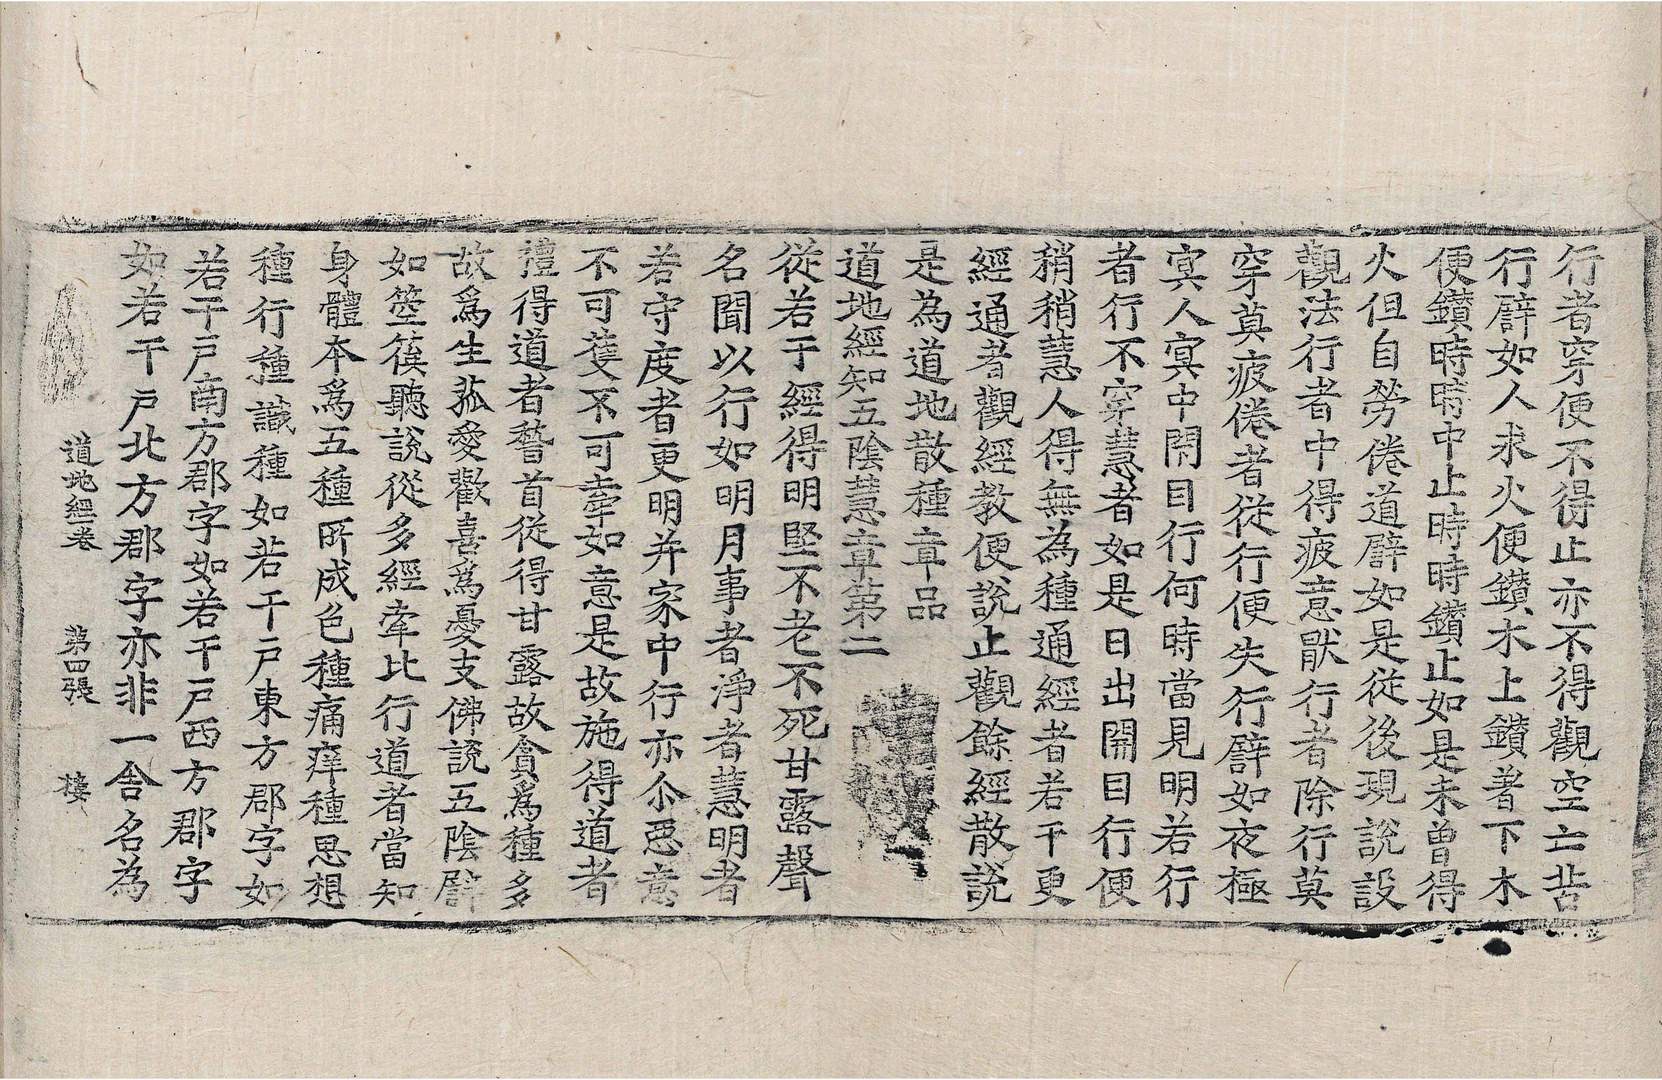 行者穿便不得止亦不得觀空亡苦
行譬如人求火便鑽木上鑽著下木
便鑽時時中止時時鑽止如是未曾得
火但自勞倦道譬如是從後現說設
觀法行者中得疲意猒行者除行莫
穿莫疲倦者從行便失行譬如夜極
冥人冥中閇目行何時當見明若行
者行不穿慧者如是日出開目行便
稍稍慧人得無為種通經者若干更
經通者觀經教便說止觀餘經散說
是為道地散種章品
道地經知五陰慧章第二
從若干經得明堅不老不死甘露聲
名聞以行如明月事者淨者慧明者
若守度者更明并家中行亦尒惡意
不可䕶不可牽如意是故施得道者
禮得道者嵇首從得甘露故貪爲種多
故爲生菰愛歡喜爲憂支佛說五陰譬
如箜篌聽說從多經牽比行道者當知
身體本爲五種所成色種痛痒種思想
種行種識種如若干戶東方郡字如
若干戶南方郡字如若干戶西方郡字
如若干戶北方郡字亦非一舍名為
道地經卷 第四張 樓